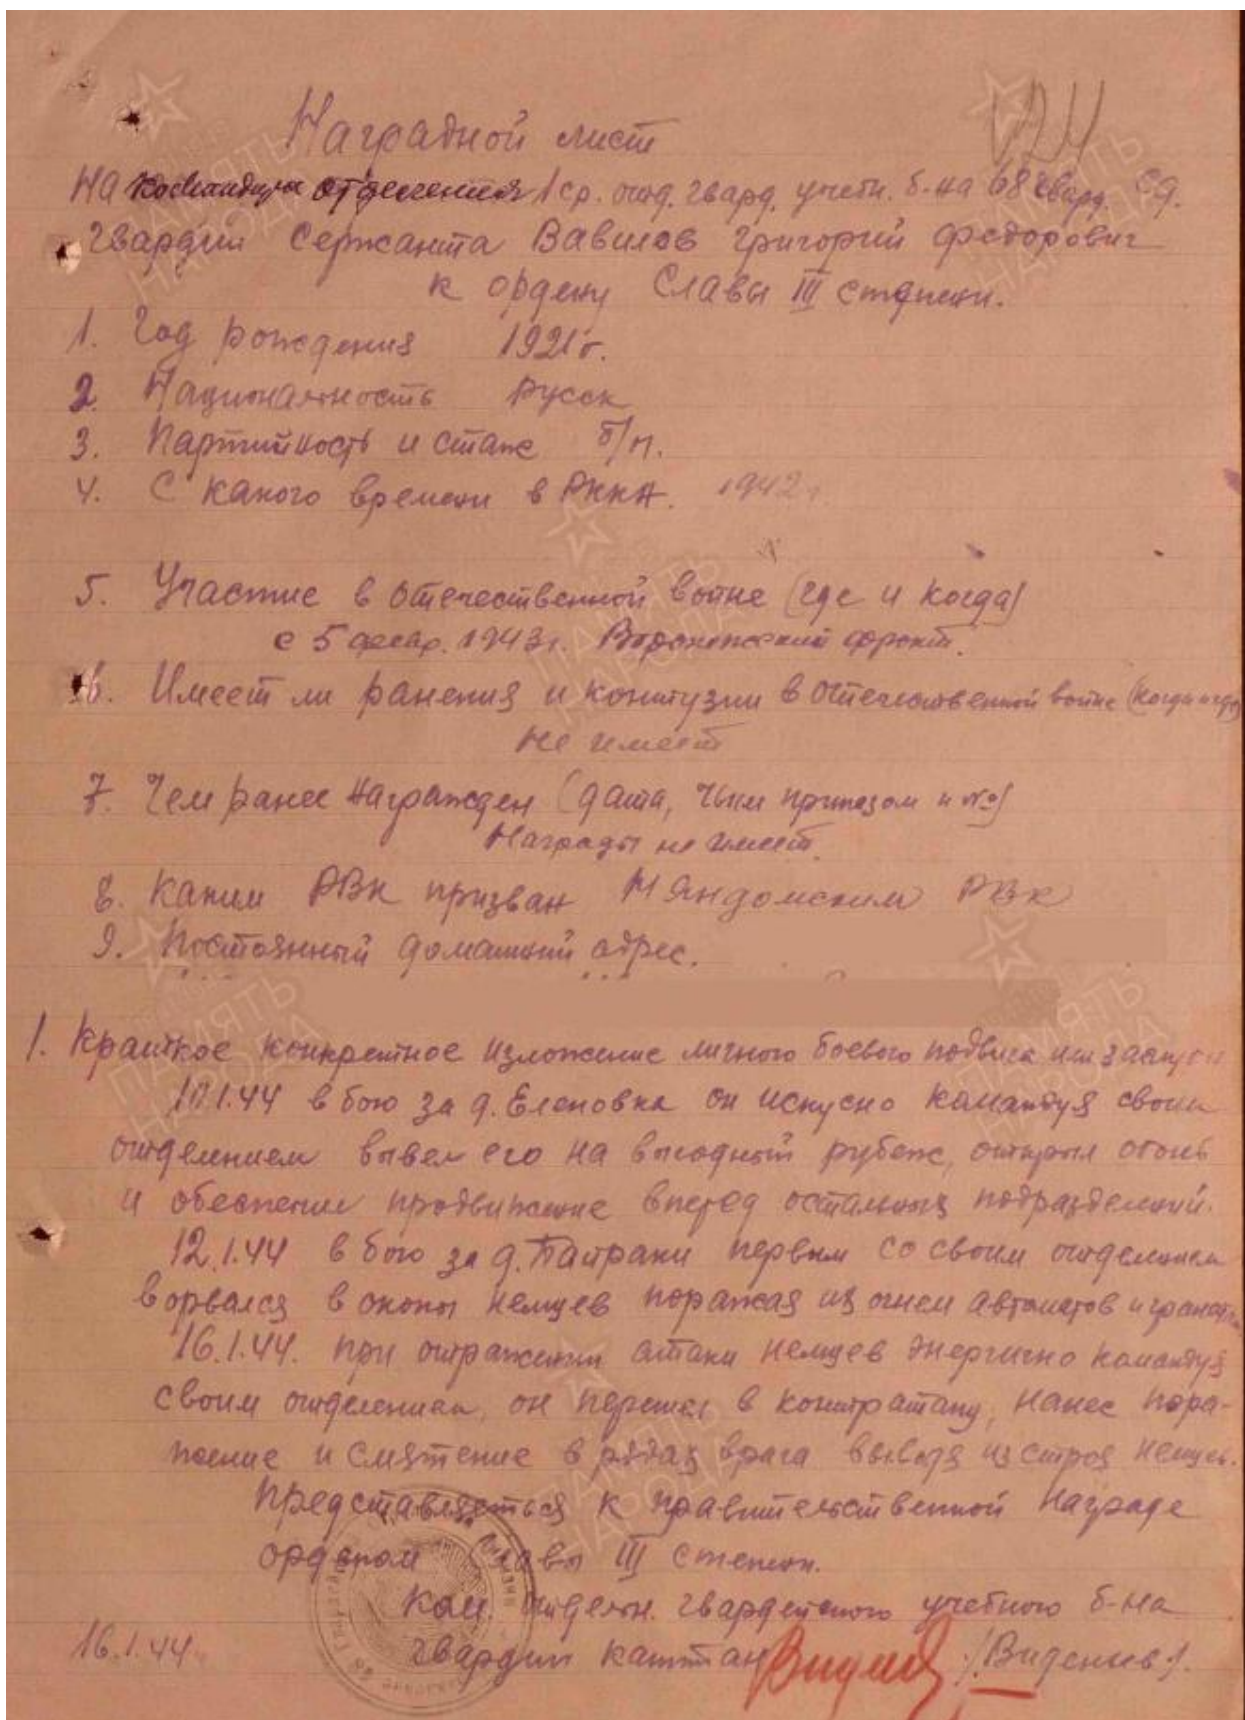 Наградной лист
На командира отделения 1 ср. отд. гвард. учебн. б-на 68 гвард. сд.
гвардии Сержанта Вавилов Григорий Федорович
к ордену Славы III степени.
1. Год рождения 1921 г.
2. Националность Русск
3. Партийность и стаж б/п.
4. С какого времени в РККА. 1942 г.
5. Участие в отечественной войне (где и когда)
с 5 февр. 1943 г. Воронежский фронт.
6. Имеет ли ранения и контузии в отечественной войне (когда и где)
Не имеет
7. Чем ранее награжден (дата, чьим приказом и №)
Награды не имеет.
8. Каким РВК призван Няндомским РВК
9. Постоянный домашний адрес.
1. Краткое конкретное изложение личного боевого подвига или заслуги
в бою за д. Еленовка он искусно командуя своим
отделением вывел его на выгодный рубеж, открыл огонь
и обеспечил продвижение вперед остальных подразделений.
12.1.44 в бою за д. Байраки первым со своим отделением
ворвался в окопы немцев поражая их огнем автоматов и гранат
16.1.44. при отражении атаки немцев энергично командуя
своим отделением, он перешел в контратаку, нанес пора-
жение и смятение в рядах врага выводя из строя немцев.
Представляеться к правительственной награде
орденом Славы III степени.
Ком. отдельн. гвардейского учебного б-на
16.1.44. гвардии капитан /Виденеев/.
ПАМЯТЬ НАРОДА